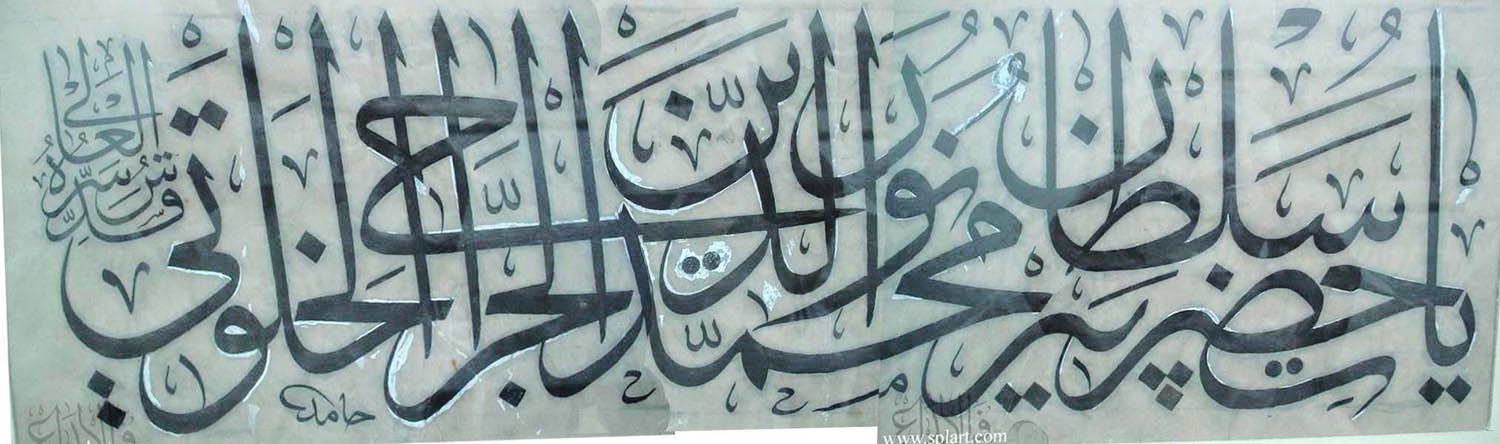 يا حضرت پير سلطان محمد نور الدين الجراحي الخلوتي
قدس سره العالي
حامد
www.splart.com